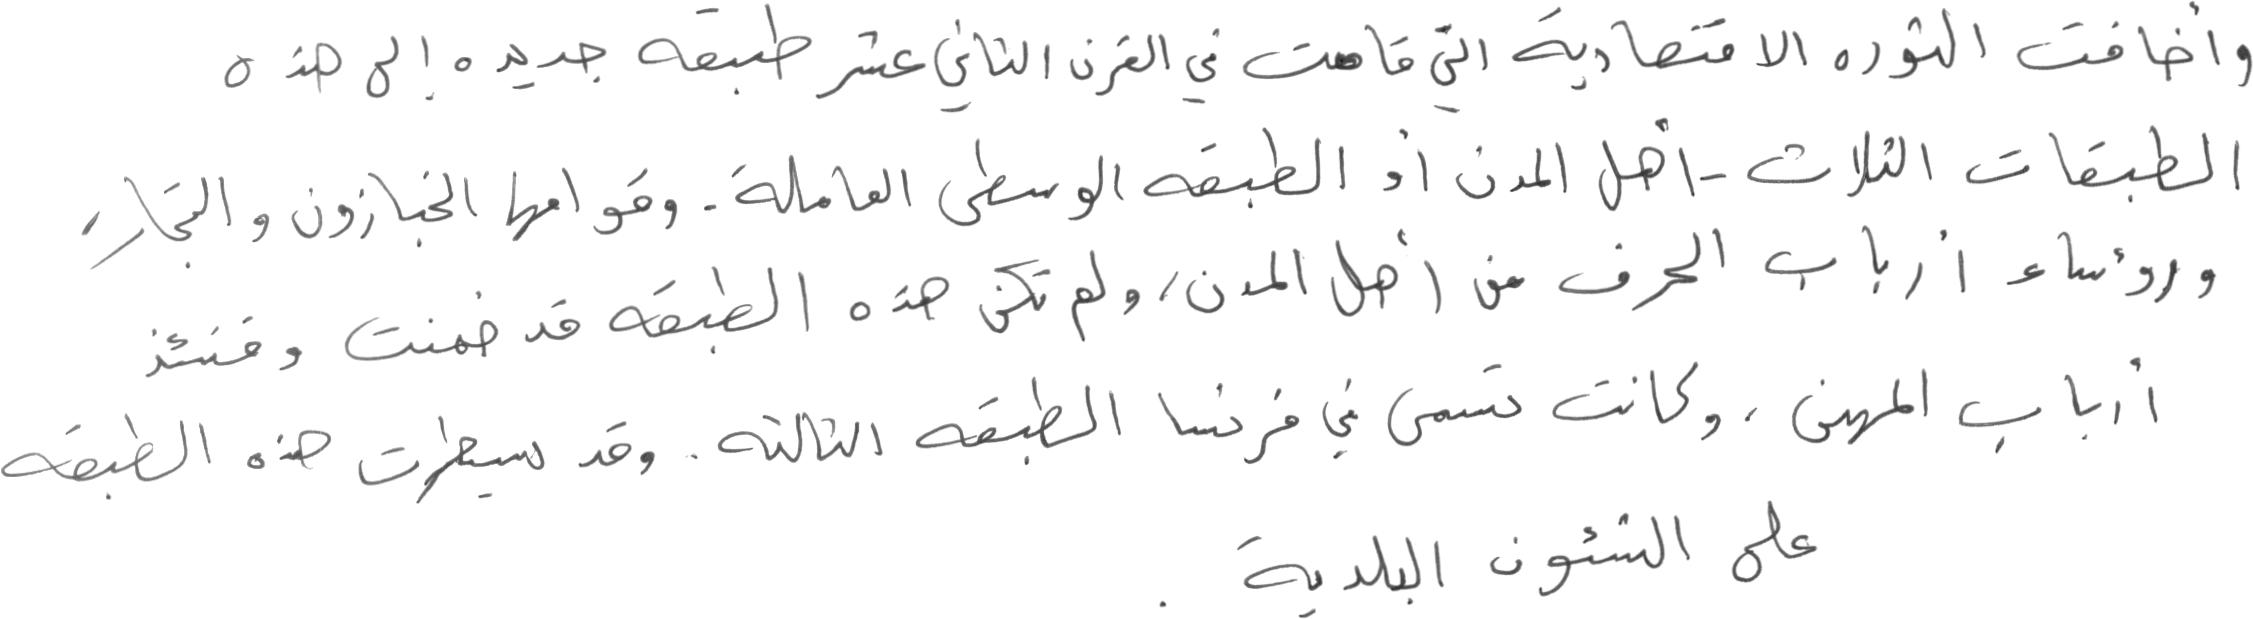 وأضافت الثوره الاقتصادية التي قامت في القرن الثاني عشر طبقه جديده إلى هذه
الطبقات الثلاث - أهل المدن أو الطبقه الوسطى العاملة - وقوامها الخبازون والتجار،
ورؤساء أرباب الحرف من أهل المدن، ولم تكن هذه الطبقه قد ضمنت وقتئذ
أرباب المهن، وكانت تسمى في فرنسا الطبقه الثالثه. وقد سيطرت هذه الطبقه
على الشئون البلدية.